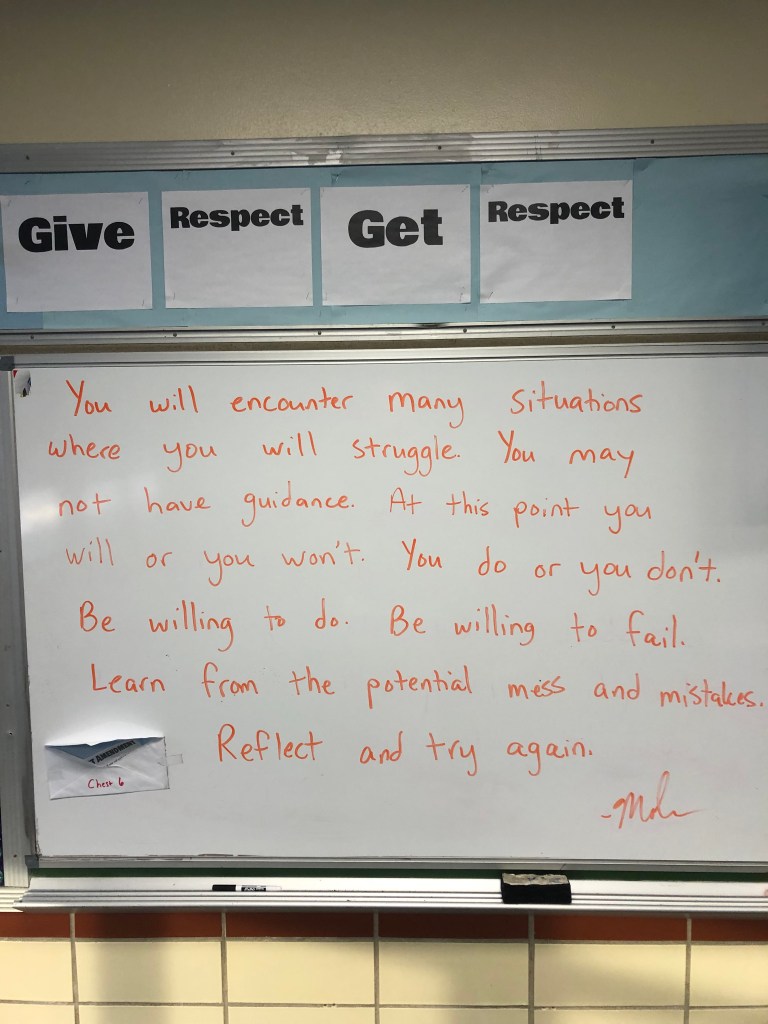 Give Respect Get Respect
You will encounter many situations
where you will struggle. You may
not have guidance. At this point you
will or you won't. You do or you don't.
Be willing to do. Be willing to fail.
Learn from the potential mess and mistakes.
Reflect and try again.
T AMENDMENT
Chest 6